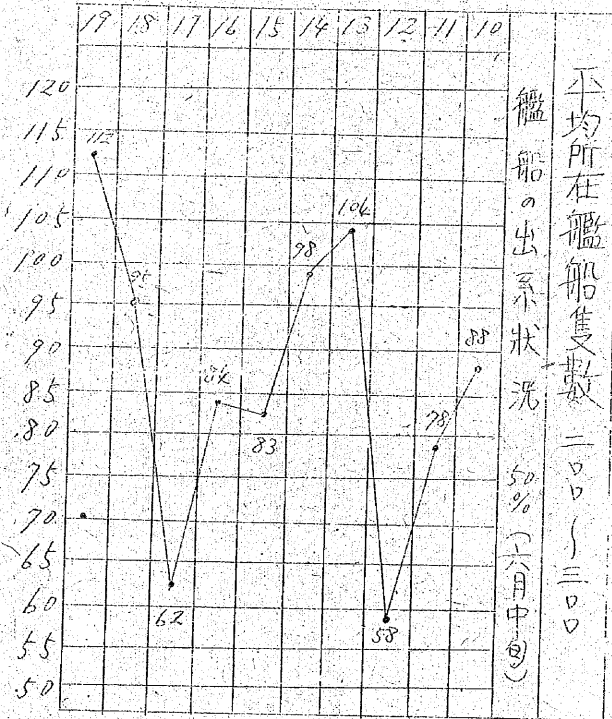 平均所在艦船隻數 二〇〇〜三〇〇
艦船の出系狀況 50% (六月中旬)
19 18 17 16 15 14 13 12 11 10
120
115
110
105
100
95
90
85
80
75
70
65
60
55
50
112
95
62
84
83
98
104
58
78
88